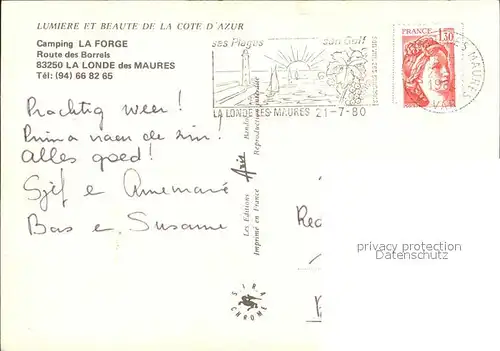 LUMIERE ET BEAUTE DE LA COTE D'AZUR
Camping LA FORGE
Route des Borrels
83250 LA LONDE des MAURES
Tél: (94) 66 82 65
ses Plages son Golf
LA LONDE LES MAURES 21-7-80
FRANCE
1,30
ES MAURES
VAR
Prachtig weer!
Prima naar de zin!
Alles goed!
Sjef e Annemarie
Bas e Susanne
Les Editions Aris
Imprimé en France
Reproduction interdite
SIRA
CHROME
privacy protection
Datenschutz